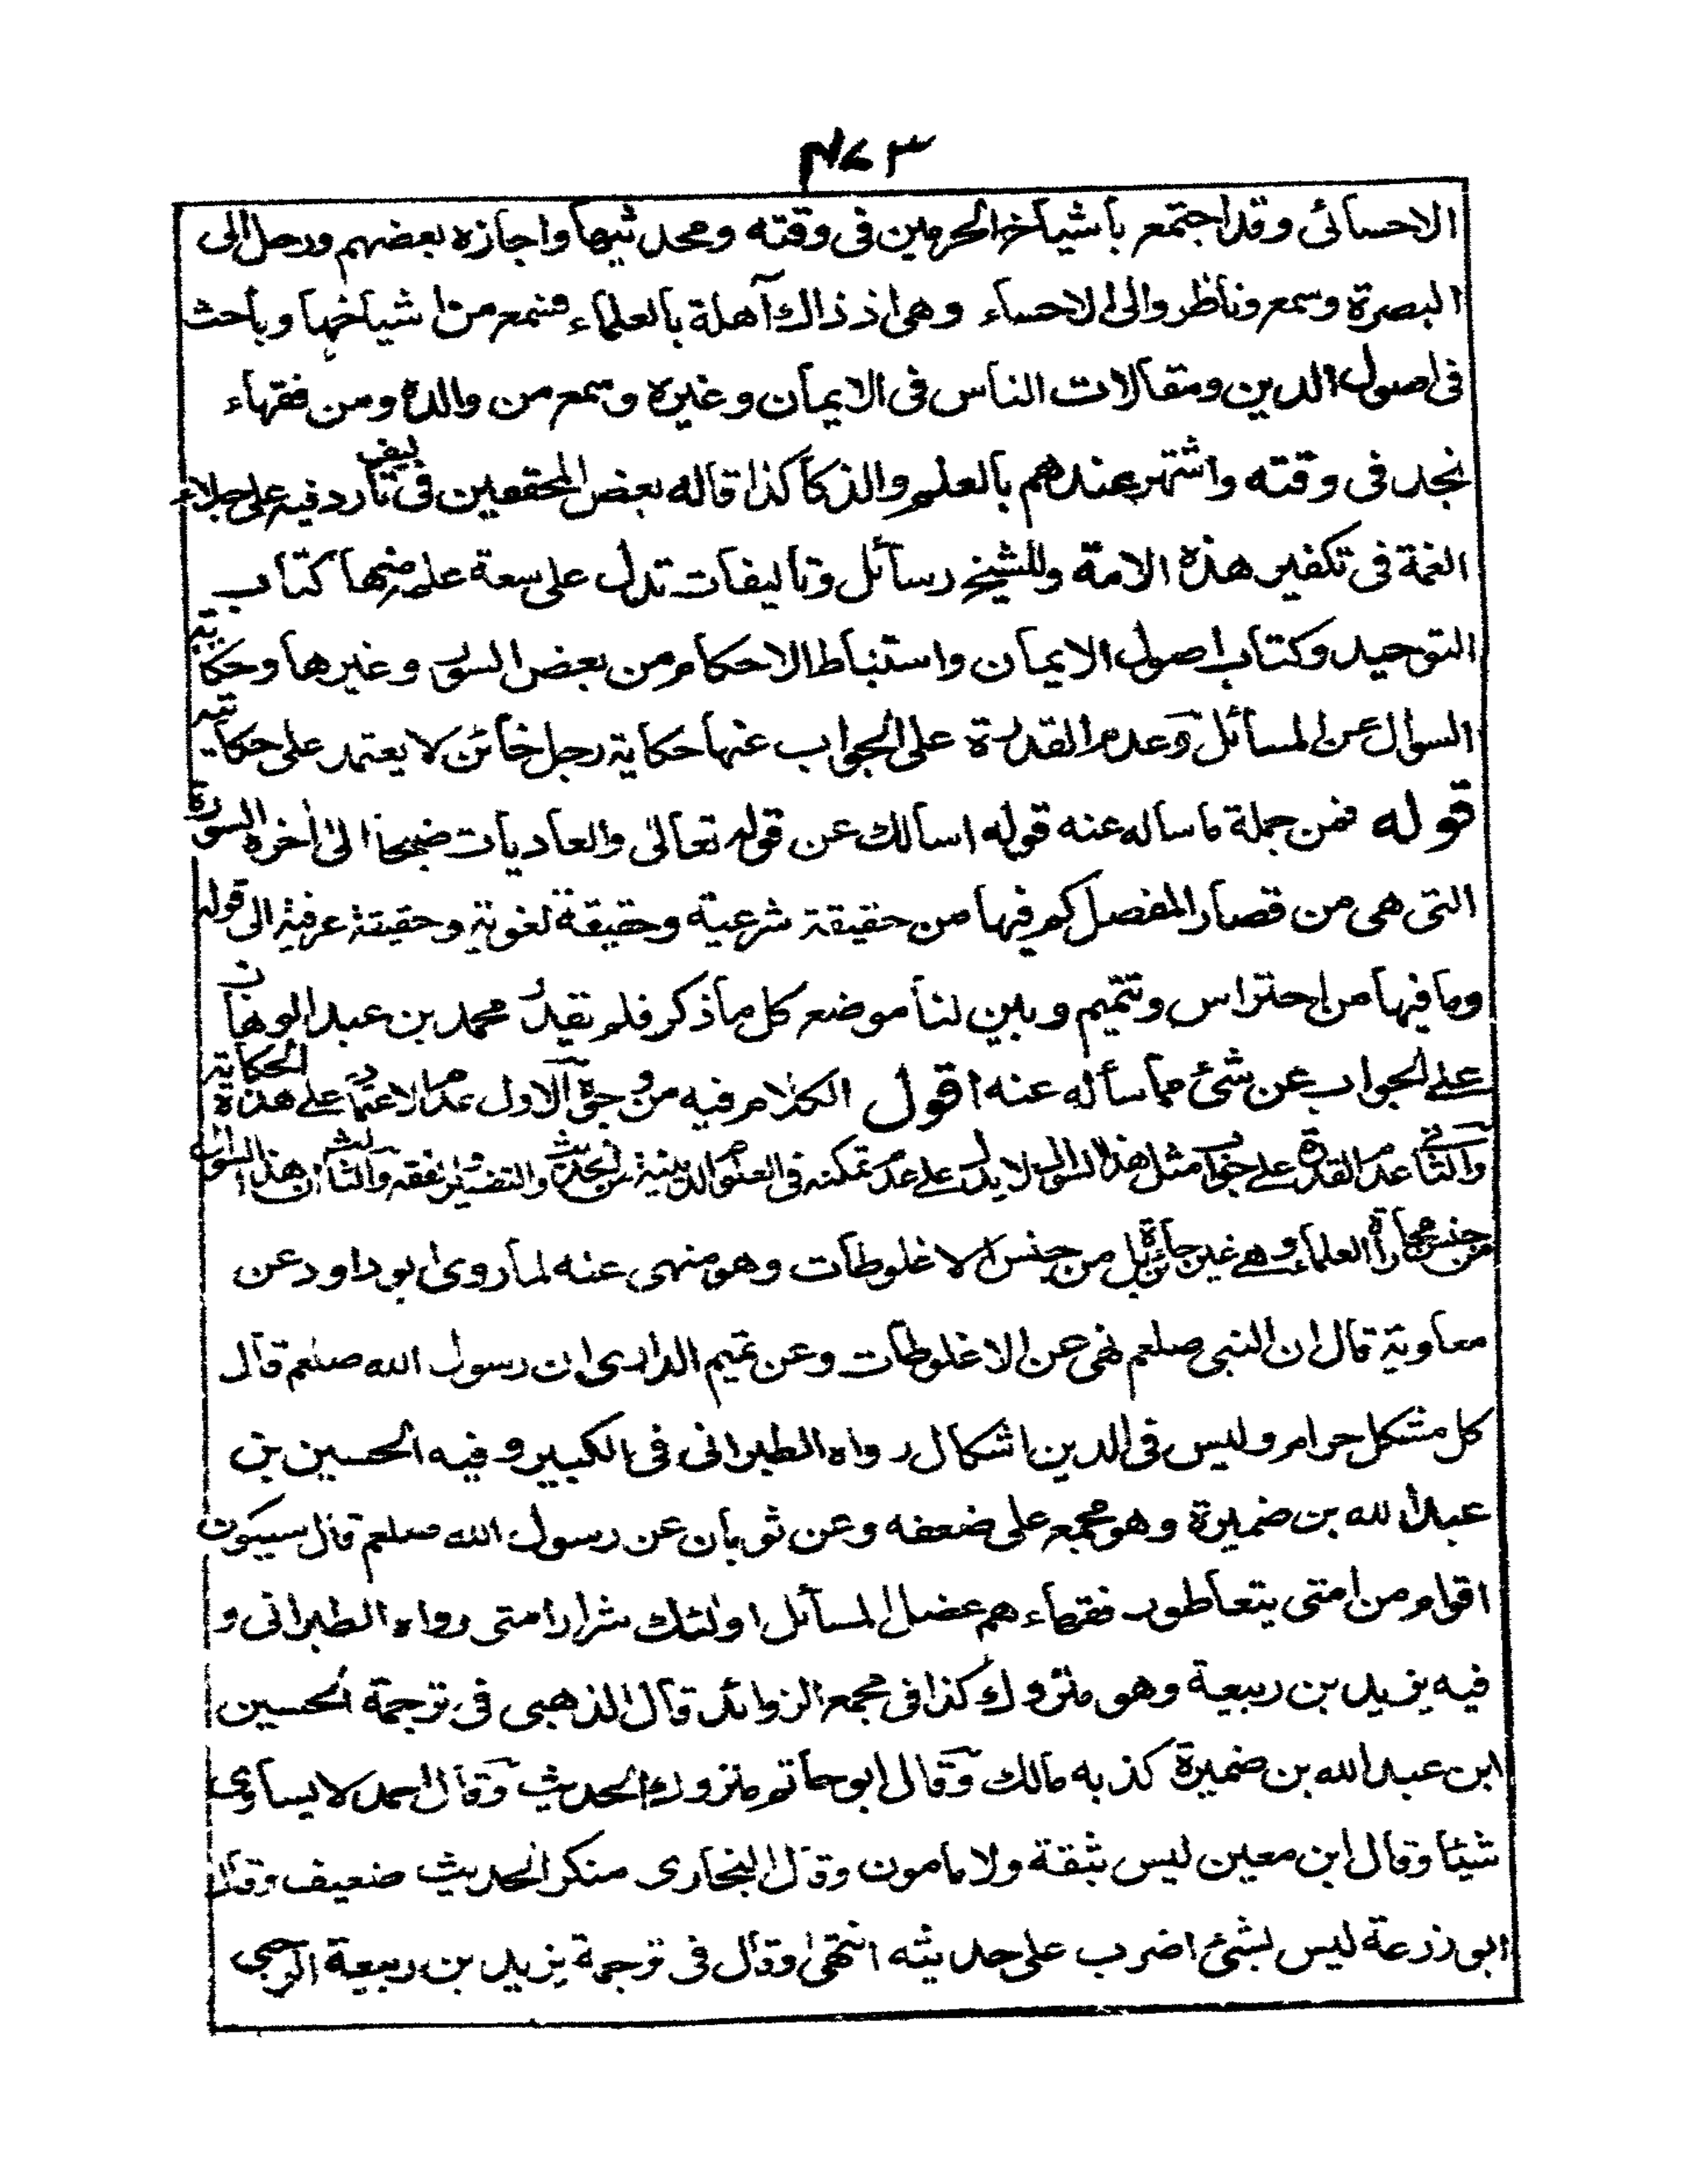 ٤٧٣
الاحسائى وقد اجتمع باشياخ الحرمين فى وقته ومحدثيها واجازه بعضهم ورحل الى
البصرة وسمع وناظر والى الاحساء وهى اذ ذاك آهلة بالعلماء فسمع من اشياخها وباحث
فى اصول الدين ومقالات الناس فى الايمان وغيره وسمع من والده ومن فقهاء
نجد فى وقته واشتهر عندهم بالعلم والذكاء كذا قاله بعض المحققين فى تاليف رد فيه على جلاء
الغمة فى تكفير هذه الامة وللشيخ رسائل وتاليفات تدل على سعة علمه منها كتاب
التوحيد وكتاب اصول الايمان واستنباط الاحكام من بعض السور وغيرها وحكاية
السوال عن المسائل وعدم القدرة على الجواب عنها حكاية رجل خائن لا يعتمد على حكايته
قوله فمن جملة ما ساله عنه قوله اسالك عن قوله تعالى والعاديات ضبحا الى اخره السورة
التى هى من قصار المفصل كم فيها من حقيقة شرعية وحقيقة لغوية وحقيقة عرفية الى قوله
وما فيها من احتراس وتتميم وبين لنا موضع كل ما ذكر فلم يقدر محمد بن عبد الوهاب
على الجواب عن شئ مما سأله عنه اقول الكلام فيه من وجوه الاول عدم الاعتماد على هذه الحكاية
والثانى عدم القدرة على جواب مثل هذا السوال لا يدل على عدم تمكنه فى العلوم الدينية من الحديث والتفسير والفقه والثالث ان هذا السوال
من جنس مجاراة العلماء وهى غير جائزة بل من جنس الاغلوطات وهو منهى عنه لما روى ابو داود عن
معاوية قال ان النبى صلعم نهى عن الاغلوطات وعن تميم الدارى ان رسول الله صلعم قال
كل مشكل حرام وليس فى الدين اشكال رواه الطبرانى فى الكبير وفيه الحسين بن
عبد الله بن ضميرة وهو مجمع على ضعفه وعن ثوبان عن رسول الله صلعم قال سيكون
اقوام من امتى يتعاطون فقهاءهم عضل المسائل اولئك شرار امتى رواه الطبرانى و
فيه يزيد بن ربيعة وهو متروك كذا فى مجمع الزوائد قال الذهبى فى ترجمة الحسين
ابن عبد الله بن ضميرة كذبه مالك وقال ابو حاتم متروك الحديث وقال احمد لا يساوى
شيئا وقال ابن معين ليس بثقة ولا مامون وقال البخارى منكر الحديث ضعيف وقال
ابو زرعة ليس بشئ اضرب على حديثه انتهى وقال فى ترجمة يزيد بن ربيعة الرحبى